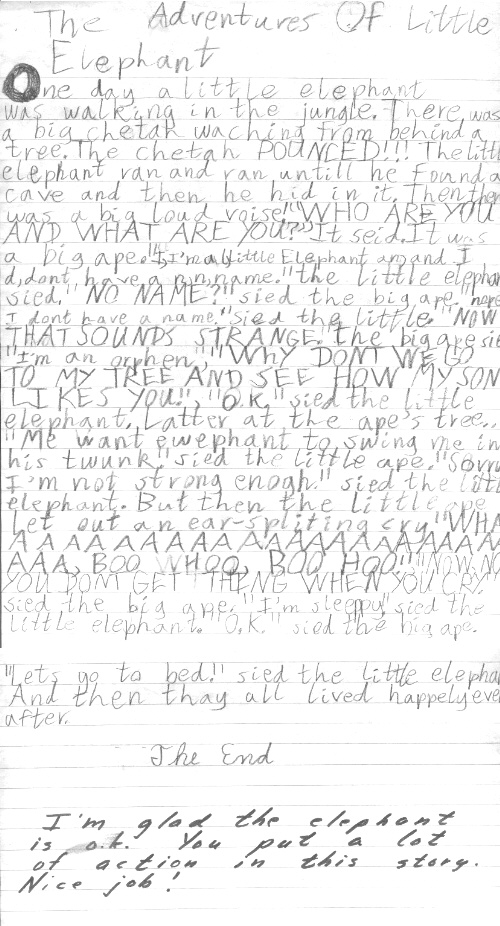 The Adventures Of Little
Elephant
One day a little elephant
was walking in the jungle. There was
a big chetah waching from behind a
tree. The chetah POUNCED!!! The littl
elephant ran and ran untill he found a
cave and then he hid in it. Then ther
was a big loud voise! "WHO ARE YOU
AND WHAT ARE YOU?" It seid. It was
a big ape. "I, I'm a little Elephant an, and I
d, dont have a n, n, name." the little elephan
sied. "NO NAME?!" sied the big ape. "nope
I dont have a name," sied the little. "NOW
THAT SOUNDS STRANGE." the big ape sie
"I'm an orphen," "WHY DONT WE GO
TO MY TREE AND SEE HOW MY SON
LIKES YOU!", "O.K." sied the little
elephant. Latter at the ape's tree..
"Me want ewephant to swing me in
his twunk," sied the little ape. "Sorry
I'm not strong enogh." sied the littl
elephant. But then the little ape
let out an ear-spliting cry. "WHA
AAAAAAAAAAAAAAAAAAAAA
AAA, BOO WHOO, BOO HOO!" "NOW, NO
YOU DONT GET THENG WHEN YOU CRY.
sied the big ape. "I'm sleepy," sied the
little elephant. "O.K." sied the big ape.
"Lets go to bed." sied the little elephan
And then thay all lived happely ever
after.
The End
I'm glad the elephant
is o.k. You put a lot
of action in this story.
Nice job!